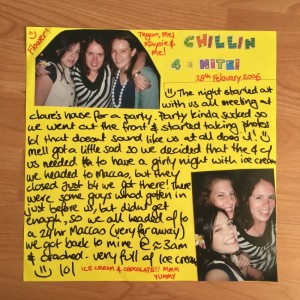 Flower!
Tegan, Mel,
Kaysie &
Me!
CHILLIN
4 a NITE!
28th Febuary 2006
The night started out
with us all meeting at
clare's house for a party. Party kinda sucked so
we went out the front & started taking photos
lol that doesnt sound like us at all does it!
mell got a little sad so we decided that the 4 of
us needed to have a girly night with ice cream
we headed to Maccas, but they
closed just b4 we got there! There
were some guys who gotten in
just before us, but didn't get
enough, so we all headed of to
a 24hr Maccas (very far away)
we got back to mine @ ≈ 3am
& crashed - very full of Ice cream
lol
ICE CREAM & CHOCOLATE!! MMM
YUMMY